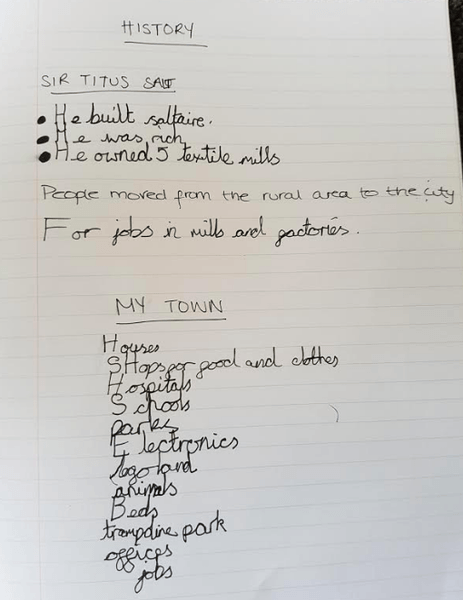 HISTORY
SIR TITUS SALT
• He built saltaire.
• He was rich
• He owned 5 textile mills
People moved from the rural area to the city
For jobs in mills and factories.
MY TOWN
Houses
SHops for food and clothes
Hospitals
Schools
parks
Electronics
lego land
animals
Beds
trampoline park
offices
jobs